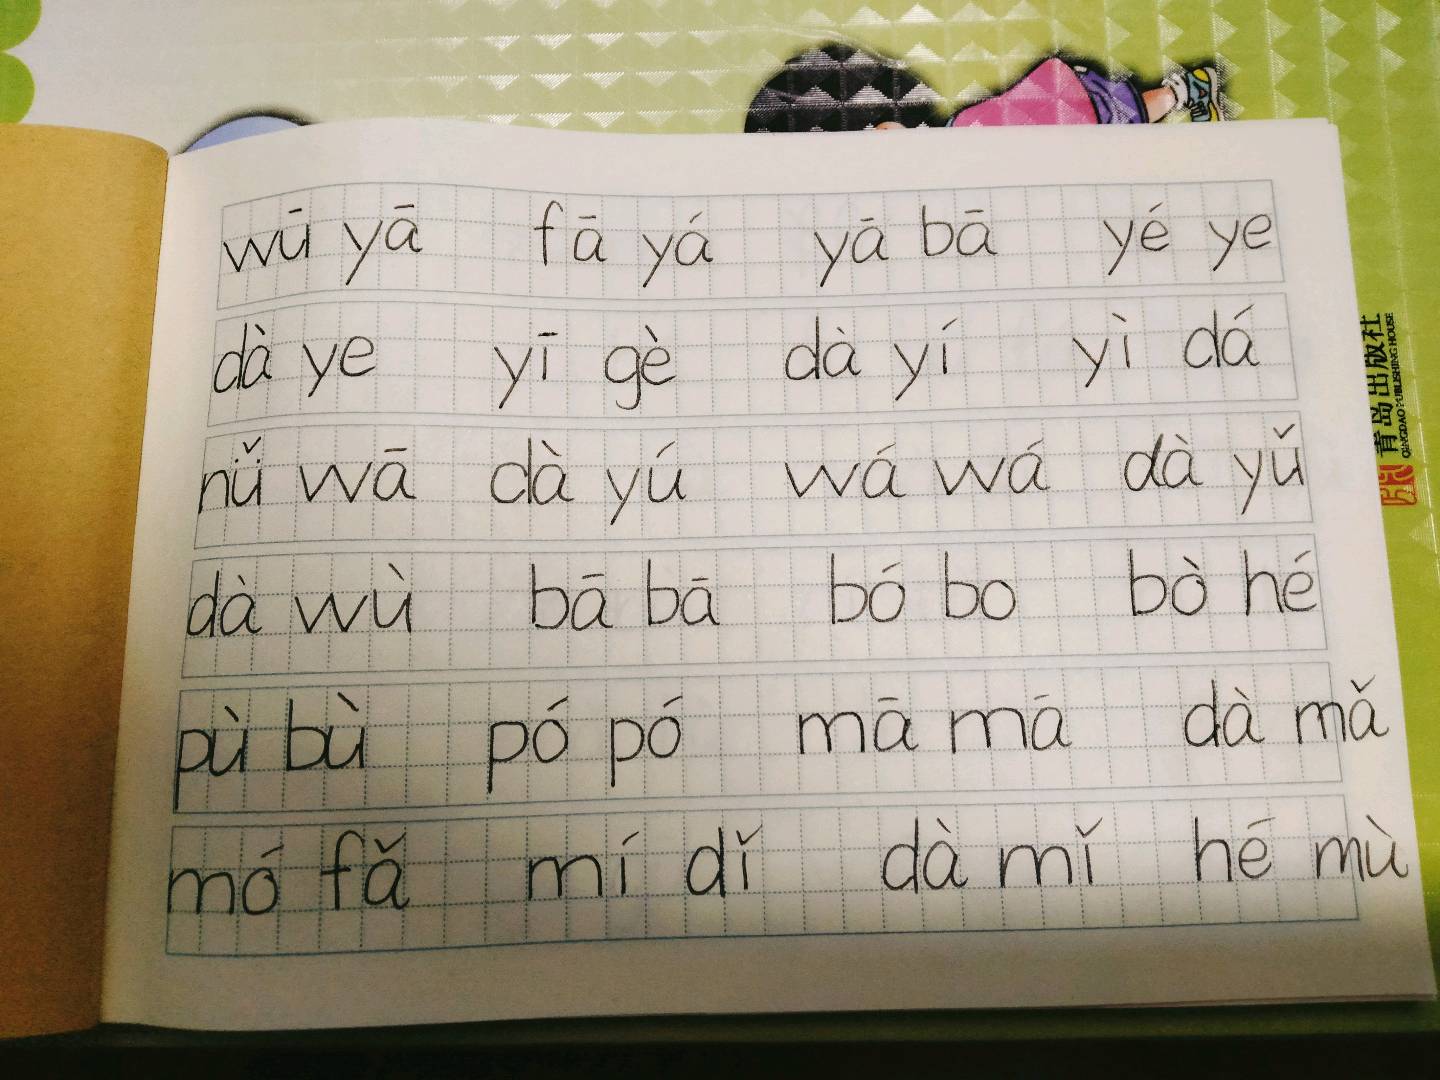 wū yā fā yá yā bā yé ye
dà ye yī gè dà yí yì dá
nǚ wā dà yú wá wá dà yǔ
dà wù bā bā bó bo bò hé
pù bù pó pó mā mā dà mǎ
mó fǎ mí dǐ dà mǐ hé mù
青岛出版社
QINGDAO PUBLISHING HOUSE